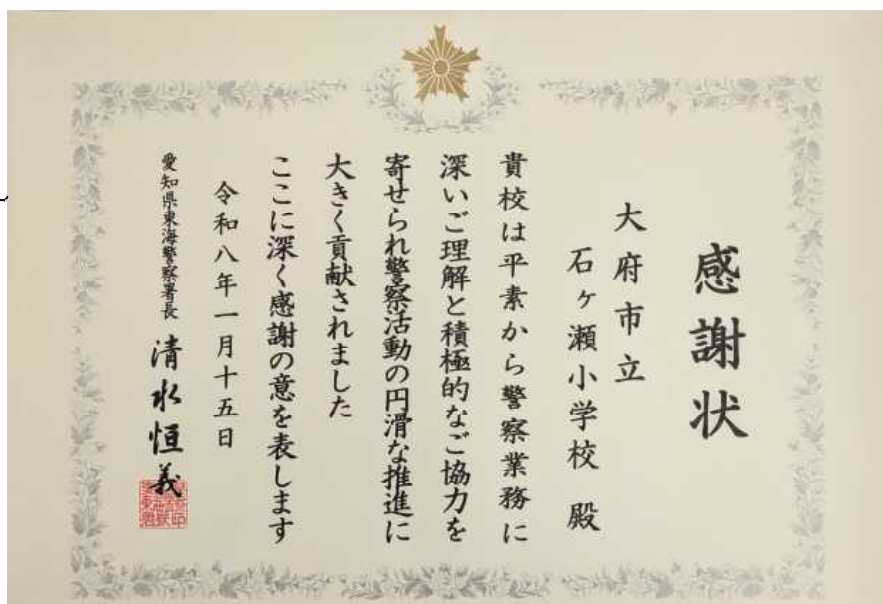 感謝状
大府市立
石ヶ瀬小学校 殿
貴校は平素から警察業務に
深いご理解と積極的なご協力を
寄せられ警察活動の円滑な推進に
大きく貢献されました
ここに深く感謝の意を表します
令和八年一月十五日
愛知県東海警察署長 清水恒義